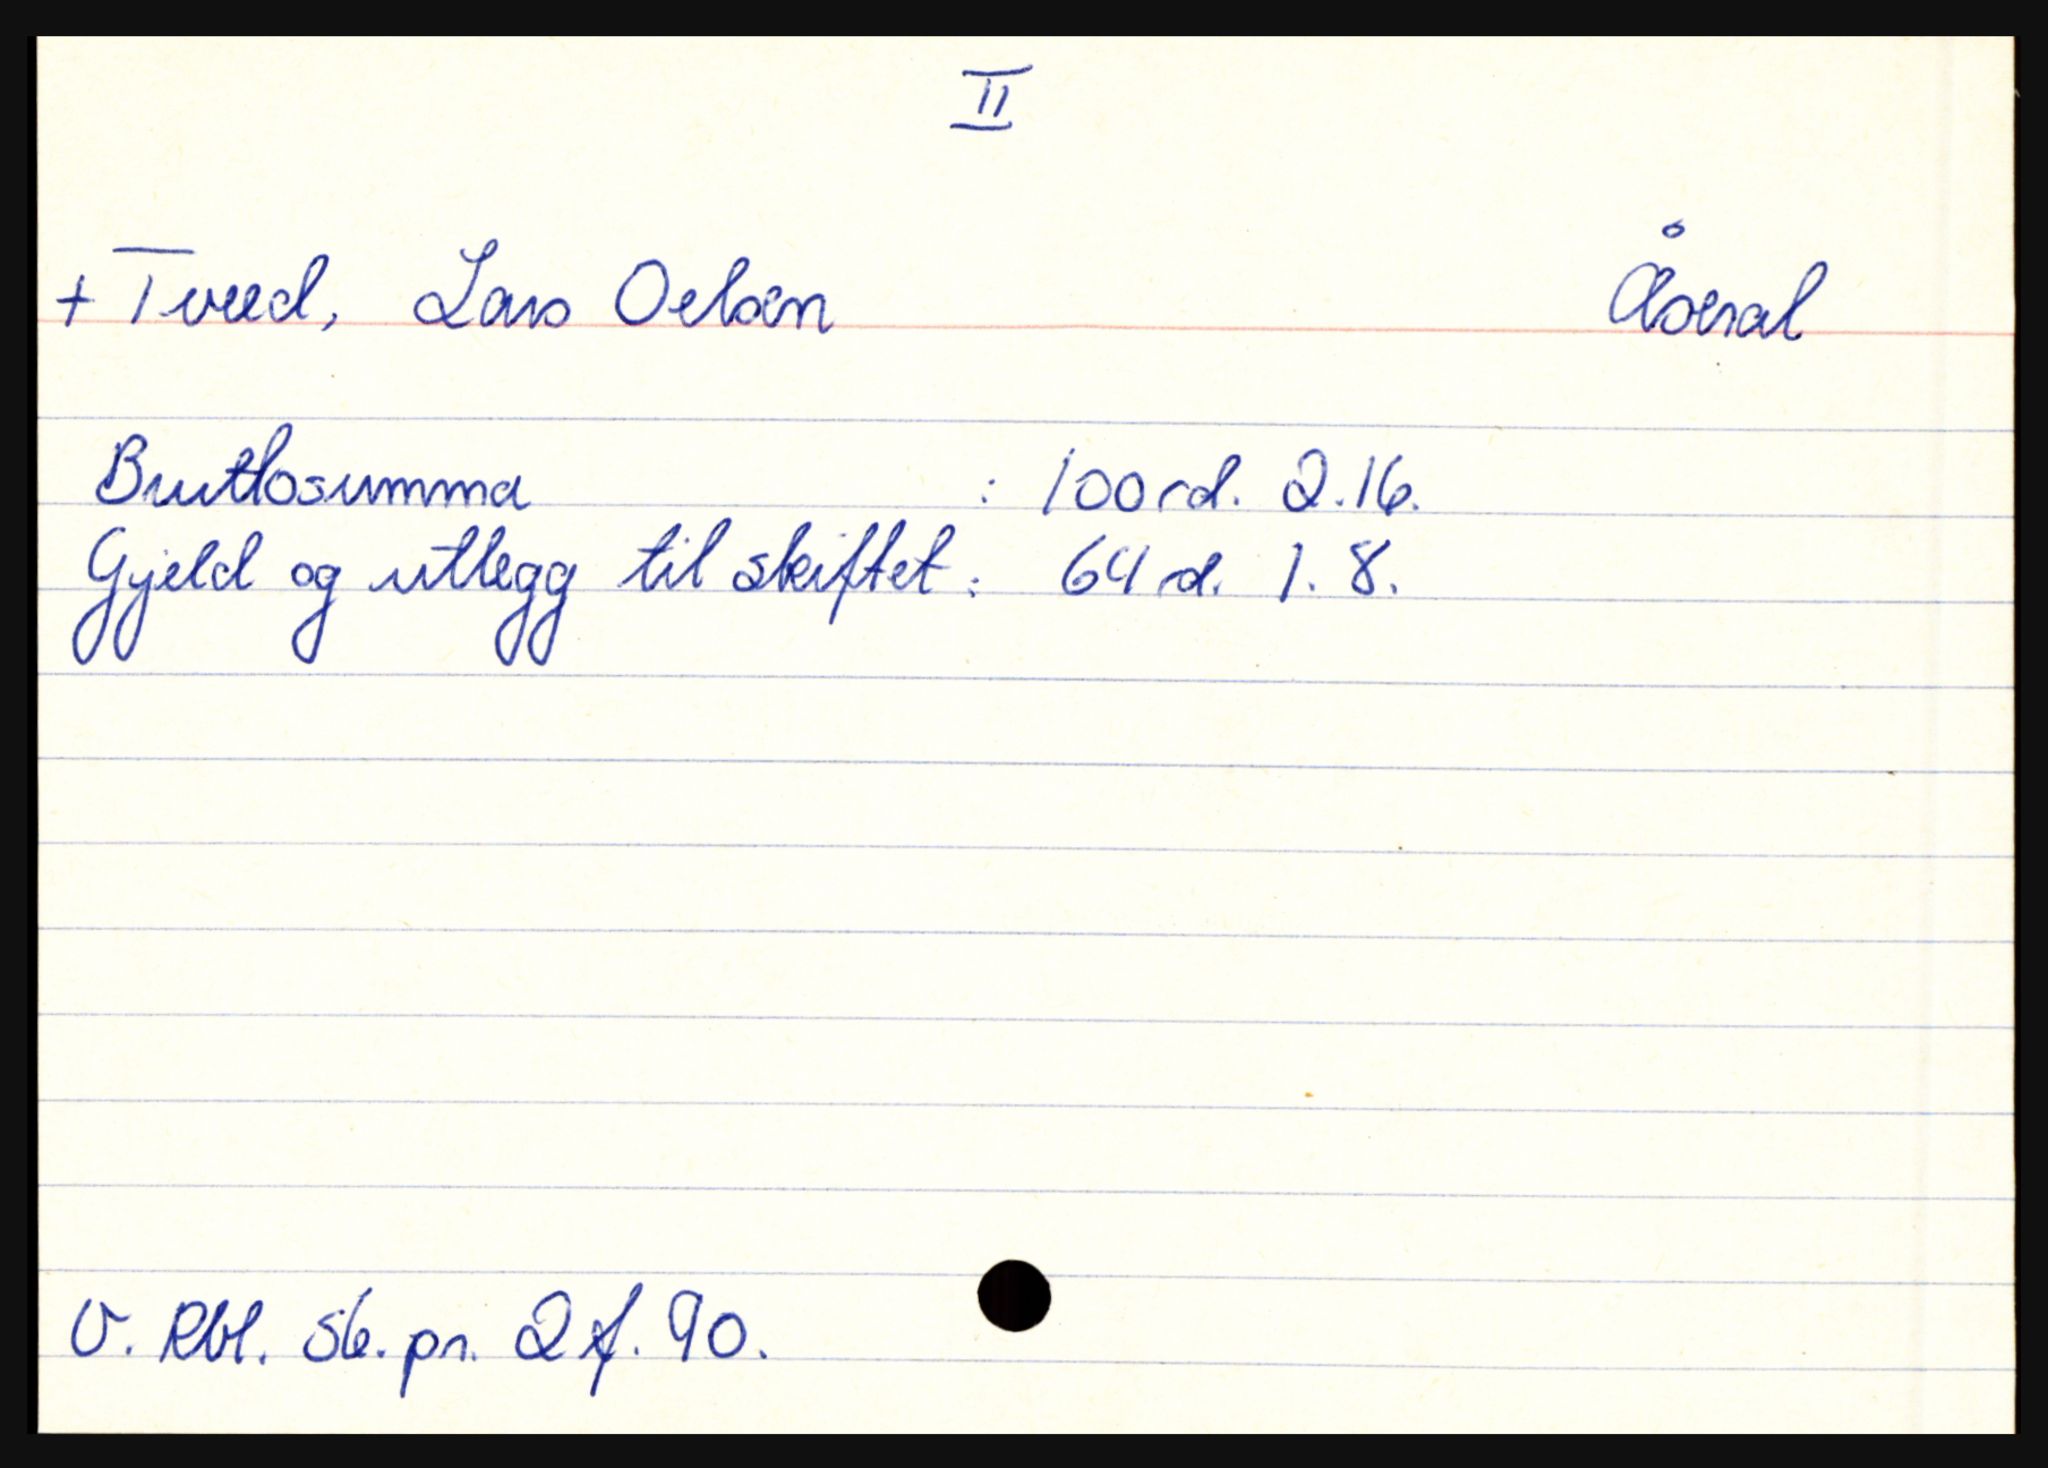 II
+ Tveed, Lars Oelsen Åseral
Bruttosumma : 100 rd. 2.16.
Gjeld og utlegg til skiftet : 64 rd. 1. 8.
V. Rbl. s6. pr. 2 f. 90.